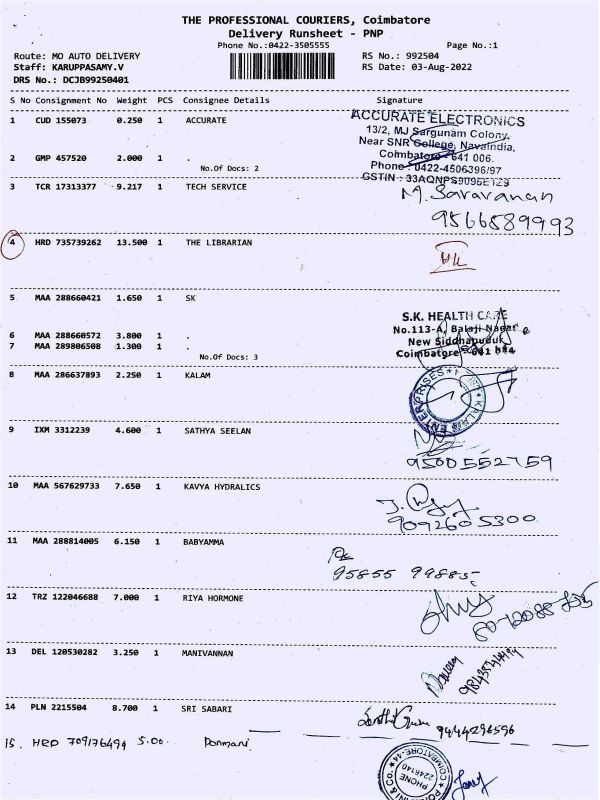 THE PROFESSIONAL COURIERS, Coimbatore
Delivery Runsheet - PNP
Phone No.:0422-3505555
Page No.:1
Route: MO AUTO DELIVERY
RS No.: 992504
Staff: KARUPPASAMY.V
RS Date: 03-Aug-2022
DRS No.: DCJB99250401
S No Consignment No Weight PCS Consignee Details Signature
1 CUD 155073 0.250 1 ACCURATE
ACCURATE ELECTRONICS
13/2, MJ Sargunam Colony,
Near SNR College, Navaindia,
Coimbatore - 641 006.
Phone : 0422-4506396/97
GSTIN : 33AQNPS9095E1Z9
2 GMP 457520 2.000 1 .
No.Of Docs: 2
3 TCR 17313377 9.217 1 TECH SERVICE
M. Saravanan
9566589993
4 HRD 735739262 13.500 1 THE LIBRARIAN
5 MAA 288660421 1.650 1 SK
S.K. HEALTH CARE
No.113-A, Balaji Nagar
New Siddhapudur
Coimbatore - 641 044
6 MAA 288660572 3.800 1 .
7 MAA 289806508 1.300 1 .
No.Of Docs: 3
8 MAA 286637893 2.250 1 KALAM
KALAM ENTERPRISES
9 IXM 3312239 4.600 1 SATHYA SEELAN
9500552759
10 MAA 567629733 7.650 1 KAVYA HYDRALICS
9092605300
11 MAA 288814005 6.150 1 BABYAMMA
95855 99885
12 TRZ 122046688 7.000 1 RIYA HORMONE
13 DEL 120530282 3.250 1 MANIVANNAN
14 PLN 2215504 8.700 1 SRI SABARI
9444296596
15. HRD 709176494 5.00. Ponmani
PHONE
2246140
COIMBATORE-44